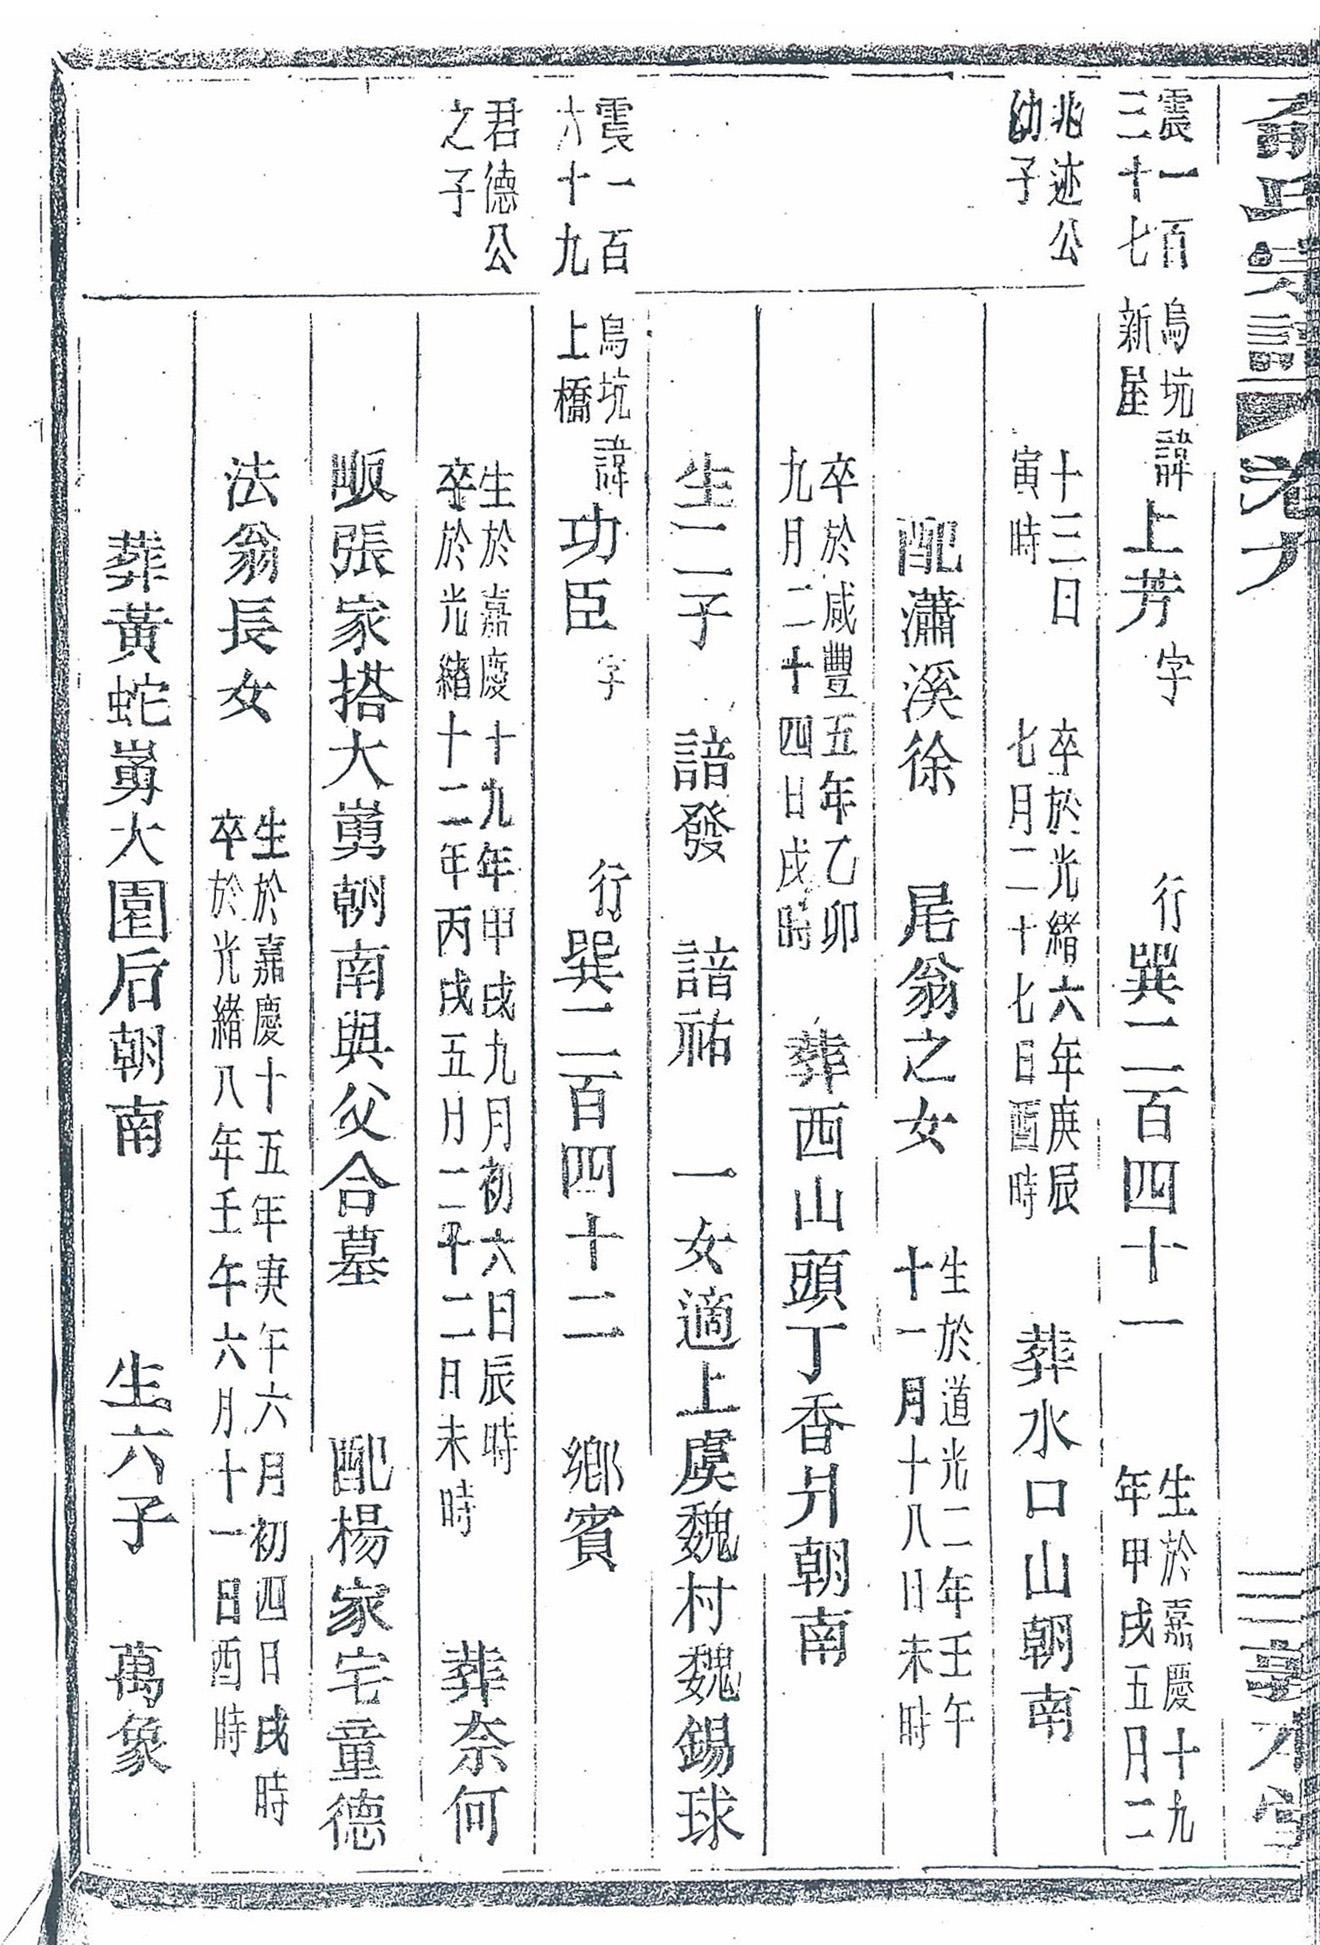 俞氏宗譜 卷九 三 敦本堂
震一百
三十七
烏坑
新屋
諱上芳 字 行巽二百四十一 生於嘉慶十九
年甲戌五月二
兆迹公
幼子
十三日
寅時
卒於光緒六年庚辰
七月二十七日酉時
葬水口山朝南
配瀟溪徐 尾翁之女 生於道光二年壬午
十一月十八日未時
卒於咸豐五年乙卯
九月二十四日戌時
葬西山頭丁香爿朝南
生二子 諳發 諳祐 一女適上虞魏村魏錫球
震一百
六十九
烏坑
上橋
諱功臣 字 行巽二百四十二 鄉賓
君德公
之子
生於嘉慶十九年甲戌九月初六日辰時
卒於光緒十二年丙戌五月二十二日未時
葬奈何
畈張家搭大嶲朝南與父合墓 配楊家宅童德
法翁長女 生於嘉慶十五年庚午六月初四日戌時
卒於光緒八年壬午六月十一日酉時
葬黃蛇嶲大園后朝南 生六子 萬象